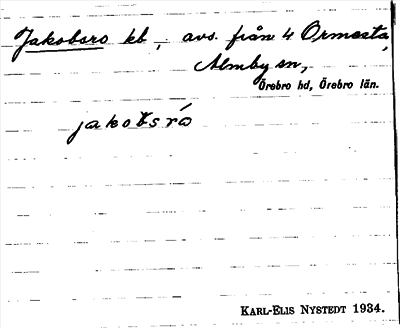 Jakobsro kb, avs. från 4 Ormesta,
Almby sn,
Örebro hd, Örebro län.
jakobsró
KARL-ELIS NYSTEDT 1934.